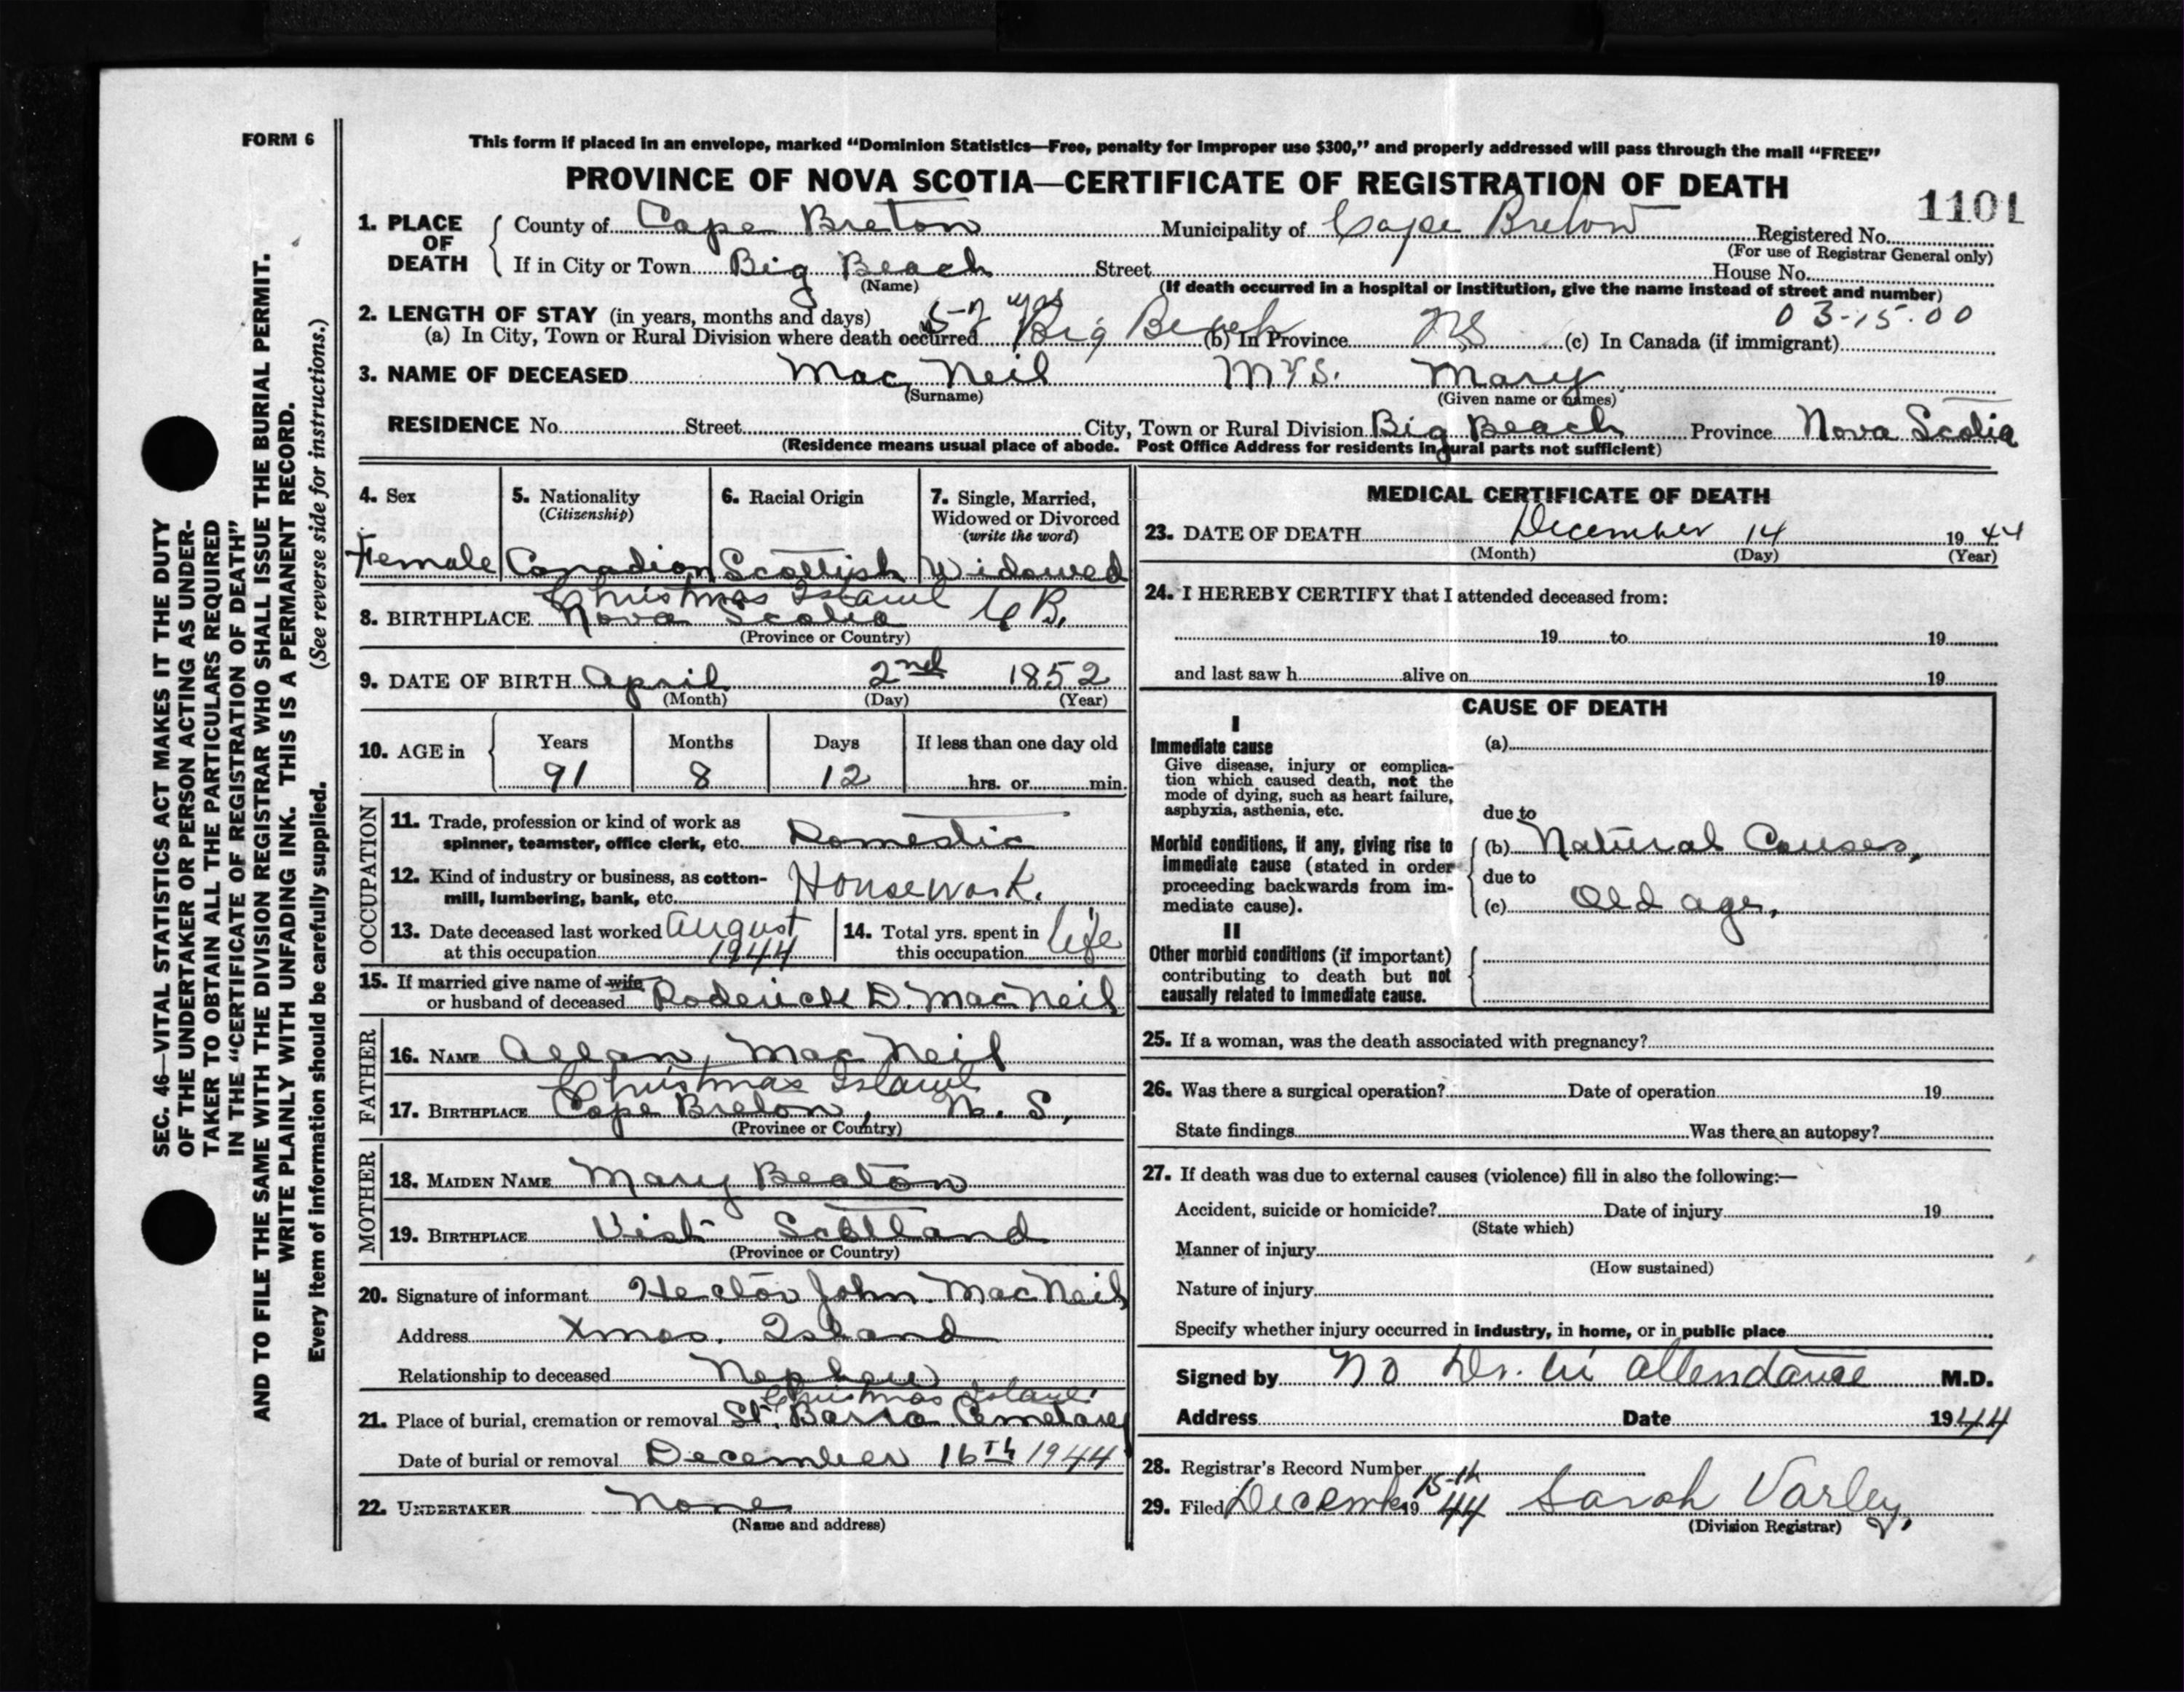 FORM 6
This form if placed in an envelope, marked "Dominion Statistics—Free, penalty for improper use $300," and properly addressed will pass through the mail "FREE"
PROVINCE OF NOVA SCOTIA—CERTIFICATE OF REGISTRATION OF DEATH
1101
1. PLACE OF DEATH County of Cape Breton Municipality of Cape Breton Registered No.
(For use of Registrar General only)
If in City or Town Big Beach Street House No.
(Name) (If death occurred in a hospital or institution, give the name instead of street and number)
2. LENGTH OF STAY (in years, months and days) 57 yrs 03-15.00
(a) In City, Town or Rural Division where death occurred Big Beach (b) In Province NS (c) In Canada (if immigrant)
3. NAME OF DECEASED Mac Neil Mrs. Mary
(Surname) (Given name or names)
RESIDENCE No. Street City, Town or Rural Division Big Beach Province Nova Scotia
(Residence means usual place of abode. Post Office Address for residents in rural parts not sufficient)
4. Sex Female
5. Nationality (Citizenship) Canadian
6. Racial Origin Scottish
7. Single, Married, Widowed or Divorced (write the word) Widowed
Christmas Island C B.
8. BIRTHPLACE Nova Scotia
(Province or Country)
9. DATE OF BIRTH April 2nd 1852
(Month) (Day) (Year)
10. AGE in Years Months Days If less than one day old
91 8 12 hrs. or min.
OCCUPATION
11. Trade, profession or kind of work as
spinner, teamster, office clerk, etc. Domestic
12. Kind of industry or business, as cotton-
mill, lumbering, bank, etc. Housework.
13. Date deceased last worked at this occupation August 1944
14. Total yrs. spent in this occupation life
15. If married give name of wife
or husband of deceased Roderick D. MacNeil
FATHER
16. NAME Allan, MacNeil
Christmas Island
17. BIRTHPLACE Cape Breton, N. S,
(Province or Country)
MOTHER
18. MAIDEN NAME Mary Beaton
19. BIRTHPLACE Uist Scottland
(Province or Country)
20. Signature of informant Hector John MacNeil
Address Xmas. Island
Relationship to deceased Nephew
Christmas Island
21. Place of burial, cremation or removal St. Barra Cemetary
Date of burial or removal December 16th 1944
22. UNDERTAKER None
(Name and address)
MEDICAL CERTIFICATE OF DEATH
23. DATE OF DEATH December 14 1944
(Month) (Day) (Year)
24. I HEREBY CERTIFY that I attended deceased from:
19 to 19
and last saw h alive on 19
CAUSE OF DEATH
I
Immediate cause (a)
Give disease, injury or complica-
tion which caused death, not the
mode of dying, such as heart failure,
asphyxia, asthenia, etc.
due to
Morbid conditions, if any, giving rise to
immediate cause (stated in order
proceeding backwards from im-
mediate cause).
(b) Natural Causes,
due to
(c) Old age,
II
Other morbid conditions (if important)
contributing to death but not
causally related to immediate cause.
25. If a woman, was the death associated with pregnancy?
26. Was there a surgical operation? Date of operation 19
State findings Was there an autopsy?
27. If death was due to external causes (violence) fill in also the following:—
Accident, suicide or homicide? Date of injury 19
(State which)
Manner of injury
(How sustained)
Nature of injury
Specify whether injury occurred in industry, in home, or in public place
Signed by No Dr. in attendance M.D.
Address Date 1944
28. Registrar's Record Number
15th
29. Filed December 1944 Sarah Varley,
(Division Registrar)
SEC. 46—VITAL STATISTICS ACT MAKES IT THE DUTY
OF THE UNDERTAKER OR PERSON ACTING AS UNDER-
TAKER TO OBTAIN ALL THE PARTICULARS REQUIRED
IN THE "CERTIFICATE OF REGISTRATION OF DEATH"
AND TO FILE THE SAME WITH THE DIVISION REGISTRAR WHO SHALL ISSUE THE BURIAL PERMIT.
WRITE PLAINLY WITH UNFADING INK. THIS IS A PERMANENT RECORD.
Every item of information should be carefully supplied. (See reverse side for instructions.)